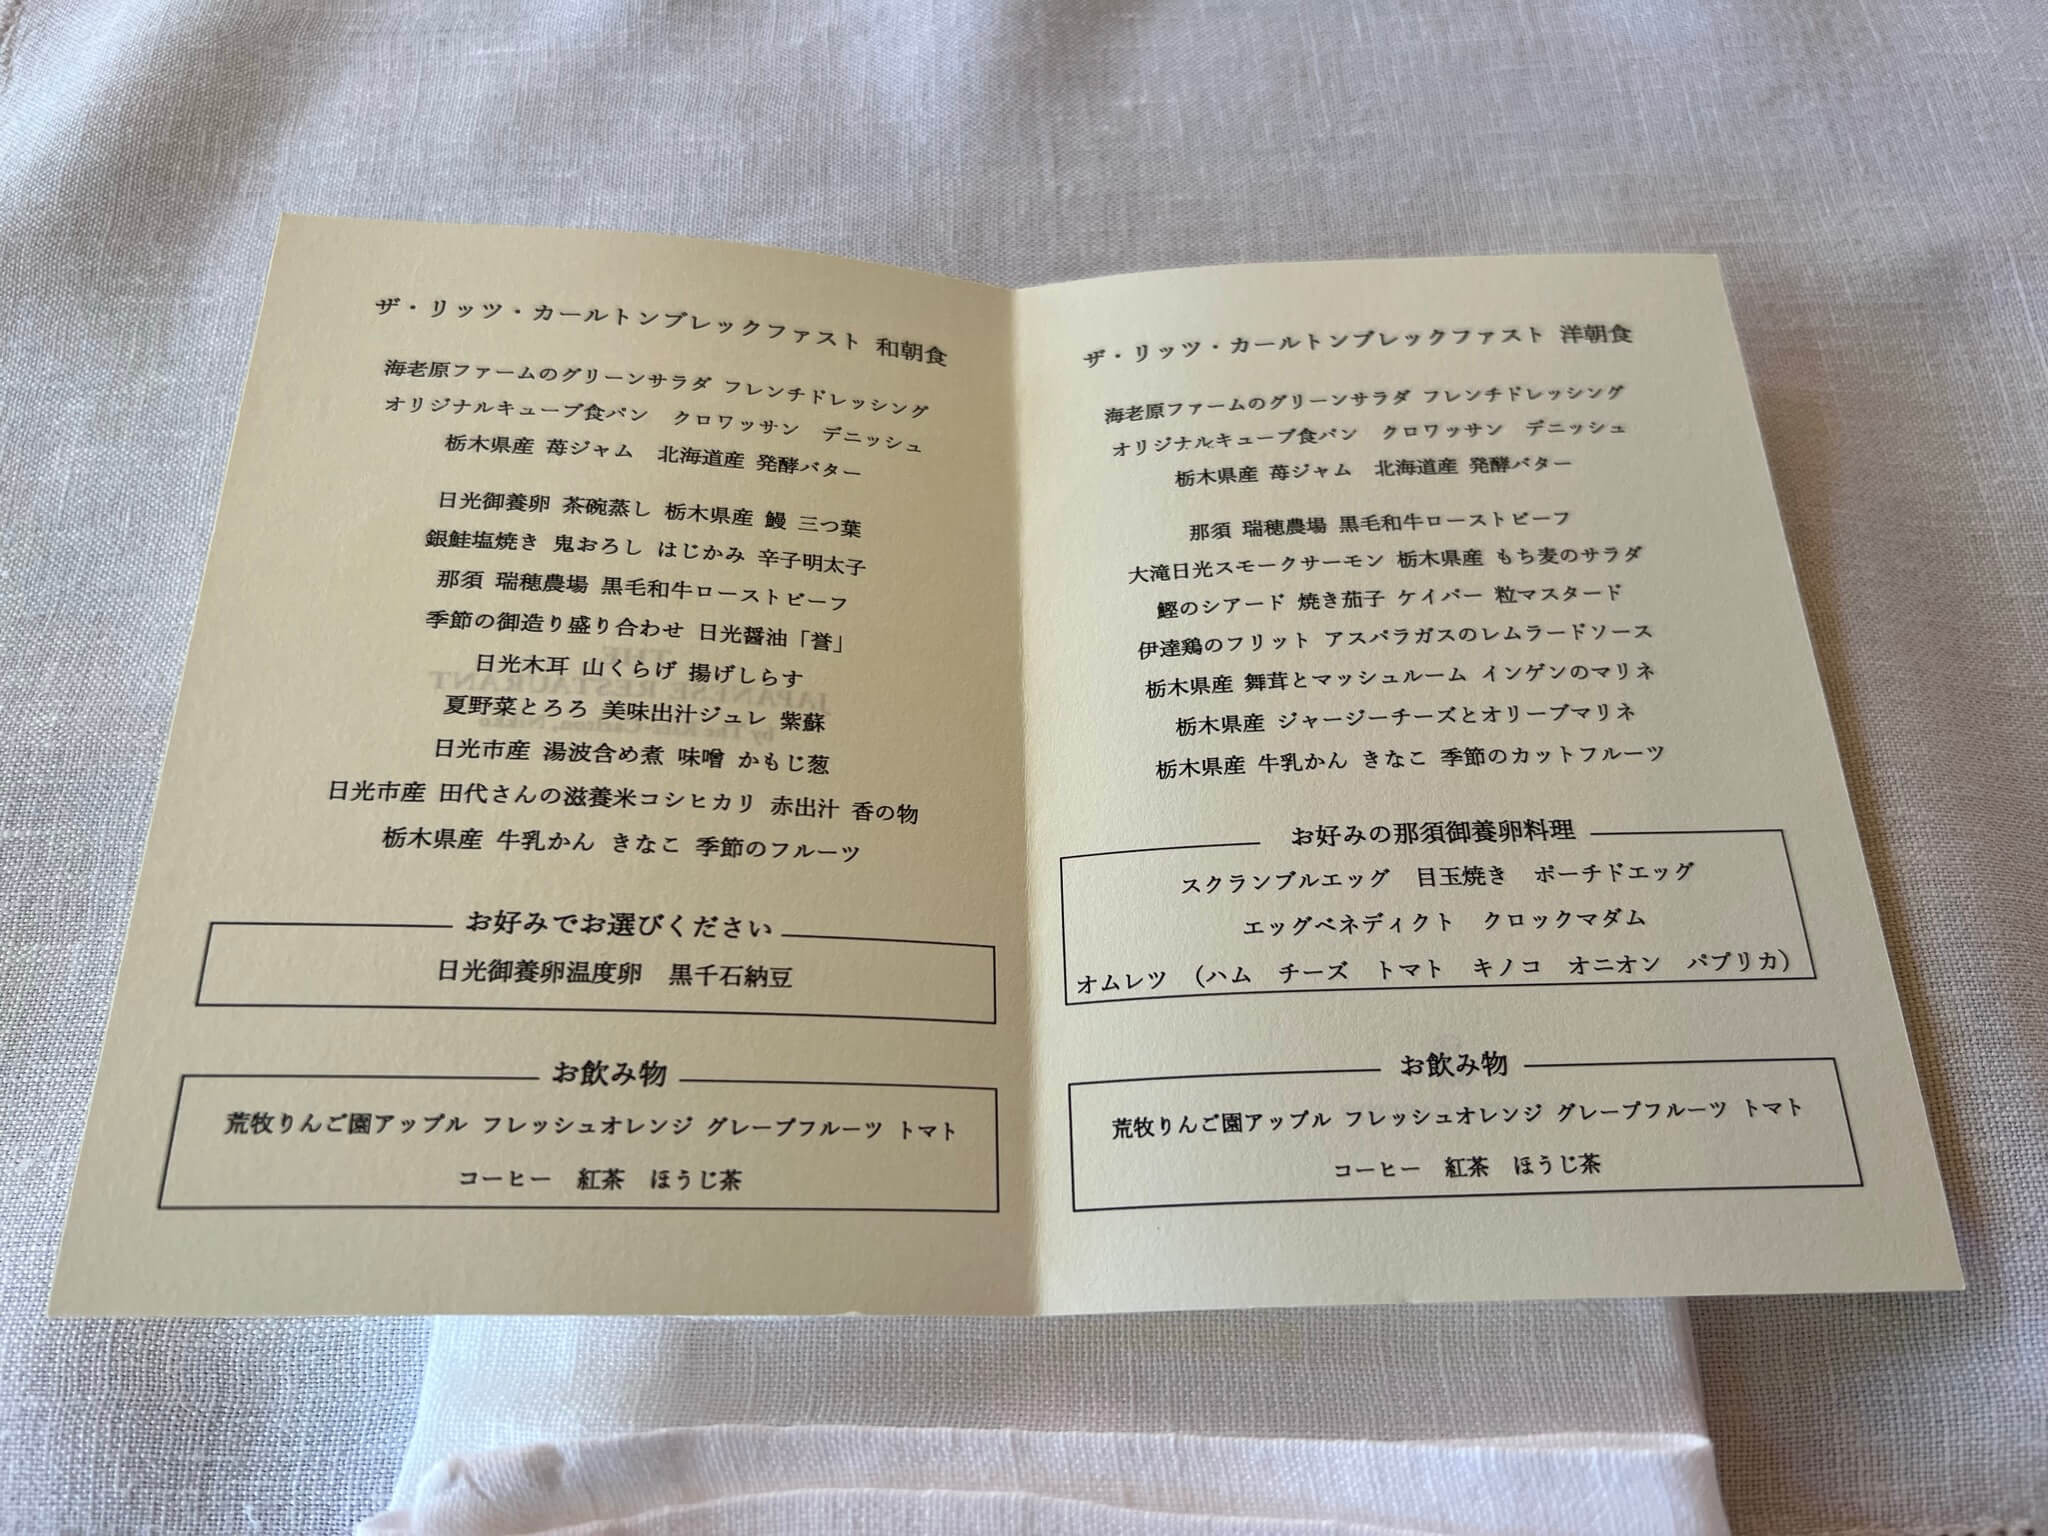 ザ・リッツ・カールトンブレックファスト 和朝食
海老原ファームのグリーンサラダ フレンチドレッシング
オリジナルキューブ食パン クロワッサン デニッシュ
栃木県産 苺ジャム 北海道産 発酵バター
日光御養卵 茶碗蒸し 栃木県産 鰻 三つ葉
銀鮭塩焼き 鬼おろし はじかみ 辛子明太子
那須 瑞穂農場 黒毛和牛ローストビーフ
季節の御造り盛り合わせ 日光醤油「誉」
日光木耳 山くらげ 揚げしらす
夏野菜とろろ 美味出汁ジュレ 紫蘇
日光市産 湯波含め煮 味噌 かもじ葱
日光市産 田代さんの滋養米コシヒカリ 赤出汁 香の物
栃木県産 牛乳かん きなこ 季節のフルーツ
お好みでお選びください
日光御養卵温度卵 黒千石納豆
お飲み物
荒牧りんご園アップル フレッシュオレンジ グレープフルーツ トマト
コーヒー 紅茶 ほうじ茶
ザ・リッツ・カールトンブレックファスト 洋朝食
海老原ファームのグリーンサラダ フレンチドレッシング
オリジナルキューブ食パン クロワッサン デニッシュ
栃木県産 苺ジャム 北海道産 発酵バター
那須 瑞穂農場 黒毛和牛ローストビーフ
大滝日光スモークサーモン 栃木県産 もち麦のサラダ
鰹のシアード 焼き茄子 ケイパー 粒マスタード
伊達鶏のフリット アスパラガスのレムラードソース
栃木県産 舞茸とマッシュルーム インゲンのマリネ
栃木県産 ジャージーチーズとオリーブマリネ
栃木県産 牛乳かん きなこ 季節のカットフルーツ
お好みの那須御養卵料理
スクランブルエッグ 目玉焼き ポーチドエッグ
エッグベネディクト クロックマダム
オムレツ （ハム チーズ トマト キノコ オニオン パプリカ）
お飲み物
荒牧りんご園アップル フレッシュオレンジ グレープフルーツ トマト
コーヒー 紅茶 ほうじ茶